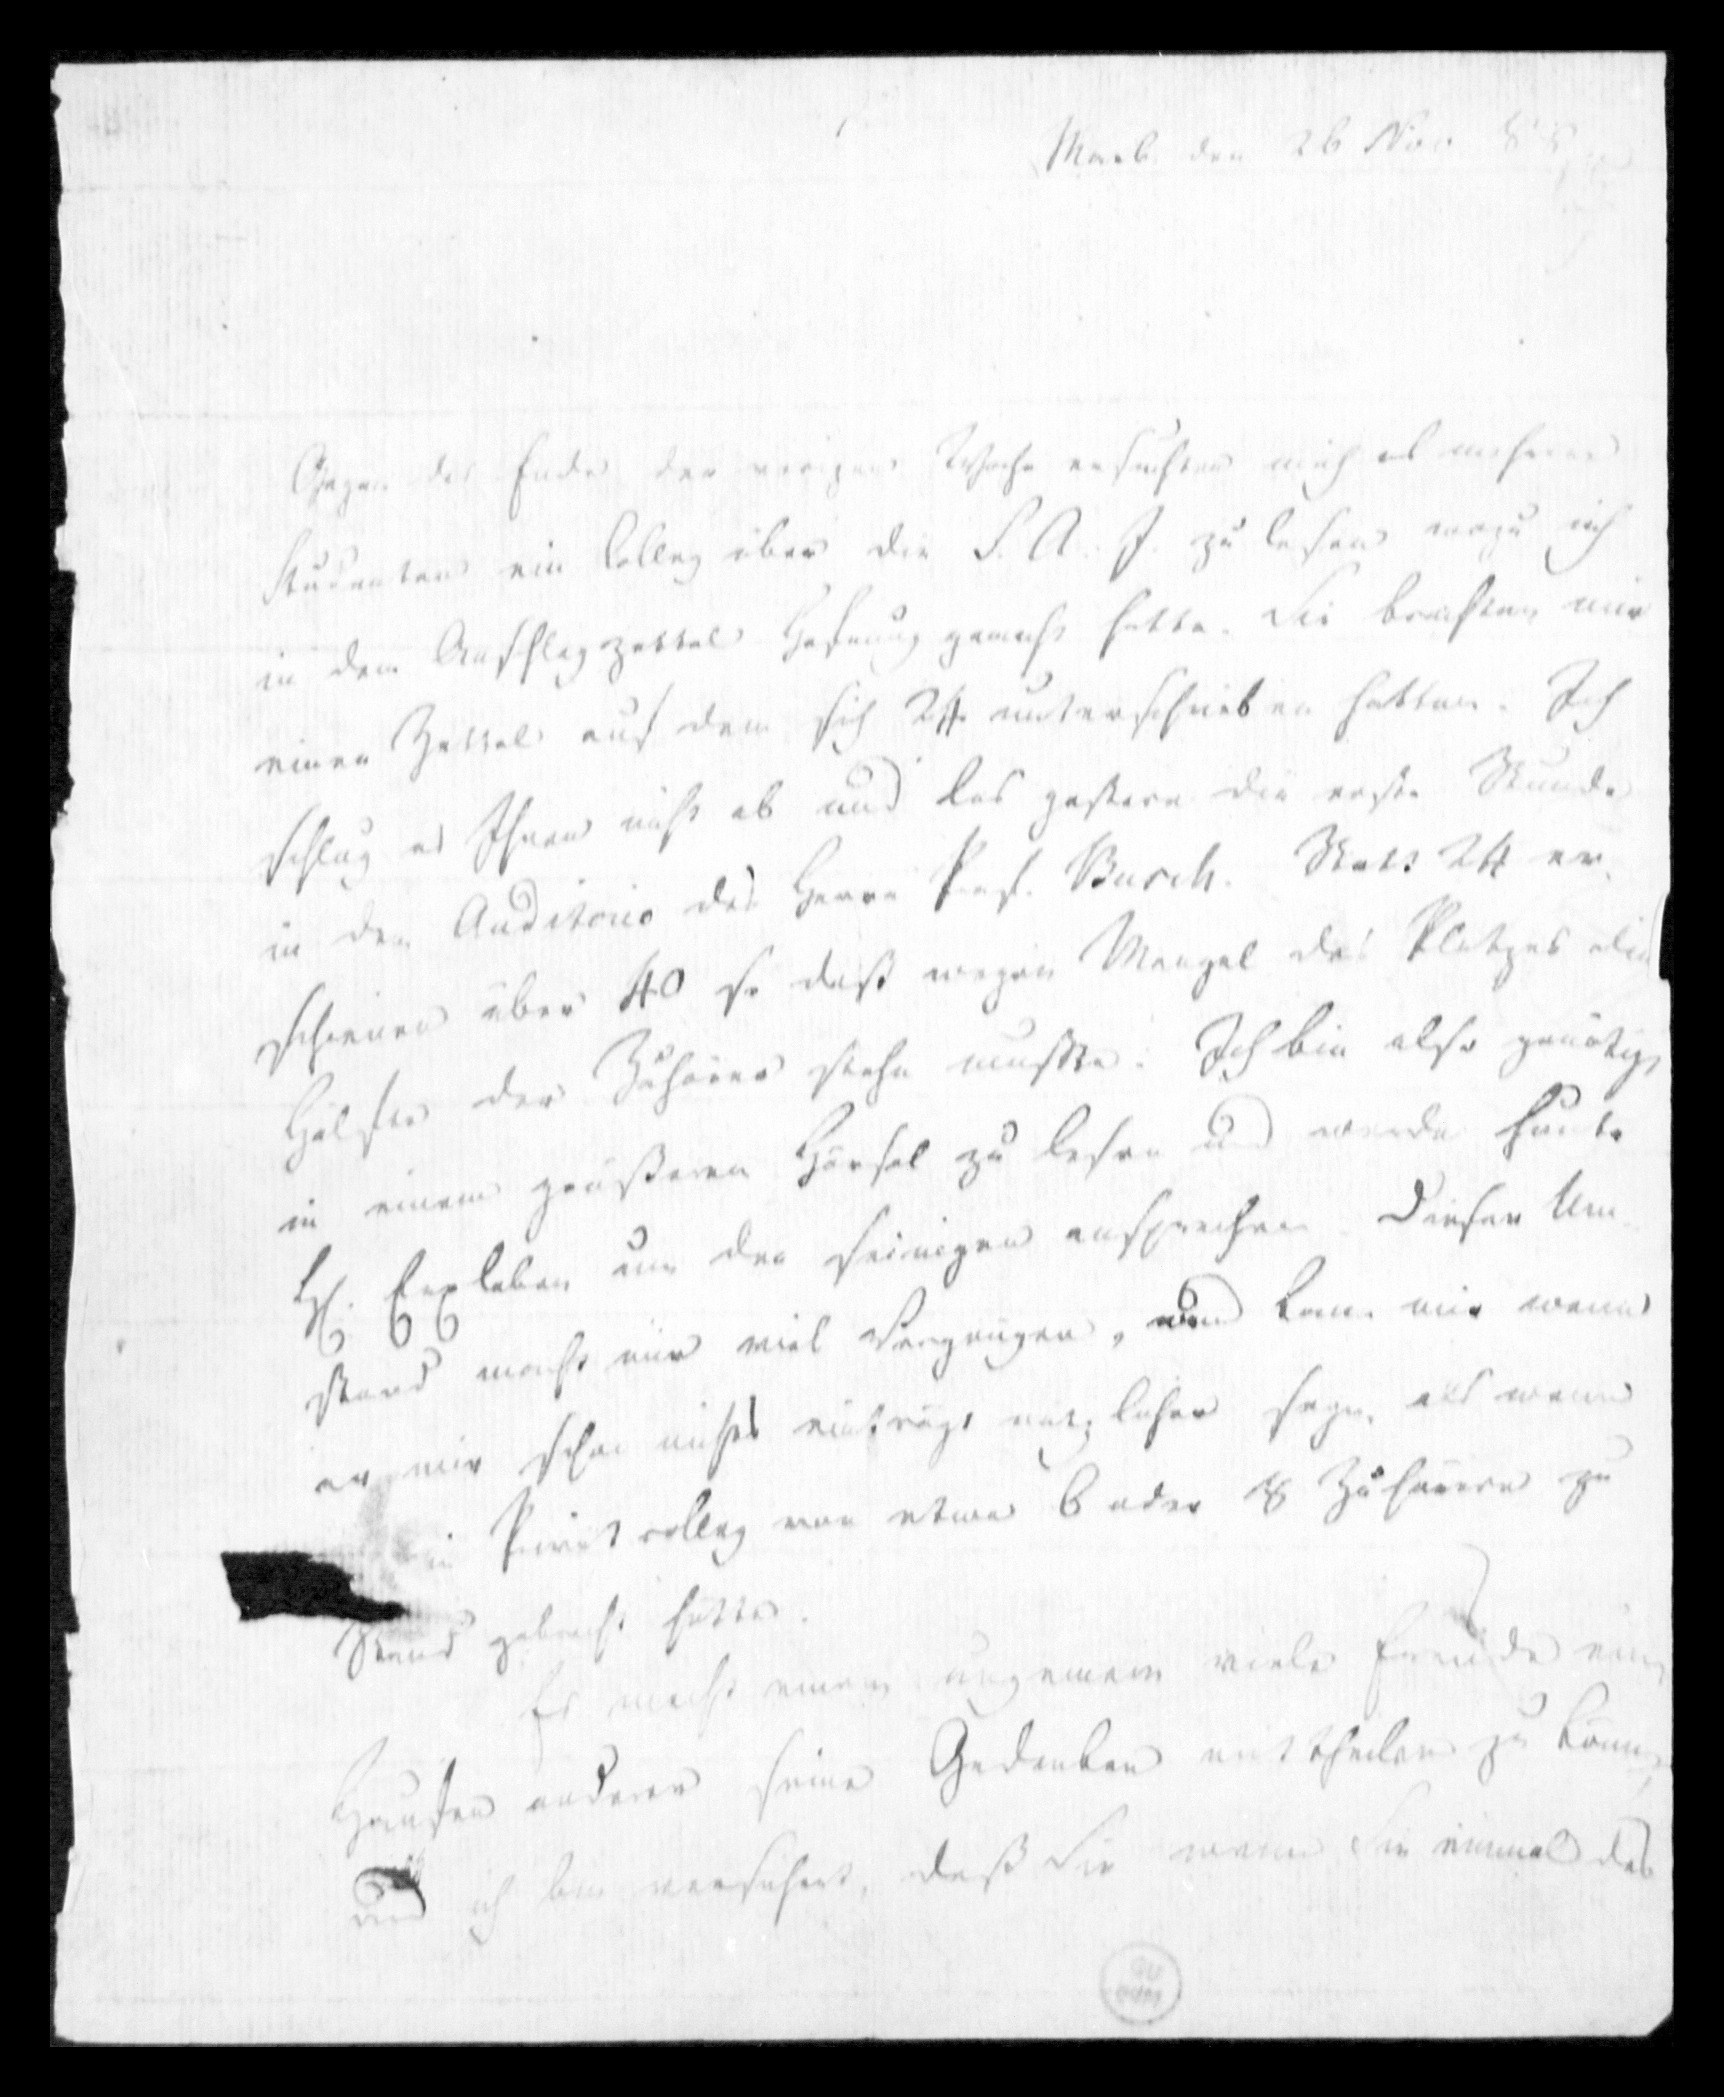 Marb. den 26 Nov. 88
Gegen das Ende der vorigen Woche ersuchten mich es mehrere
Studenten ein Colleg über die F. A. J. zu lesen wozu ich
in dem Anschlagzettel Hofnung gemacht hatte. Sie brachten mir
einen Zettel auf dem sich 24 unterschrieben hatten. Ich
schlug es Ihnen nicht ab und las gestern die erste Stunde
in dem Auditorio des Herrn Prof. Busch. Statt 24 er-
schienen über 40 so daß wegen Mangel des Platzes die
Hälfte der Zuhörer stehn muste. Ich bin also genötigt
in einem größeren Hörsal zu lesen und werde heute
H. Erxleben um den seinigen ansprechen. Dieser Um-
stand macht mir viel Vergnügen, und kann mir wenn
er mir schon nichts einträgt nützlicher seyn, als wenn
ein Privatcolleg von etwa 6 oder 8 Zuhörern zu
Stand gebracht hätte.
Es macht einem ungemein viele Freude einem
Haufen anderer seine Gedanken mittheilen zu können
und ich bin versichert, daß Sie wenn Sie einmal das